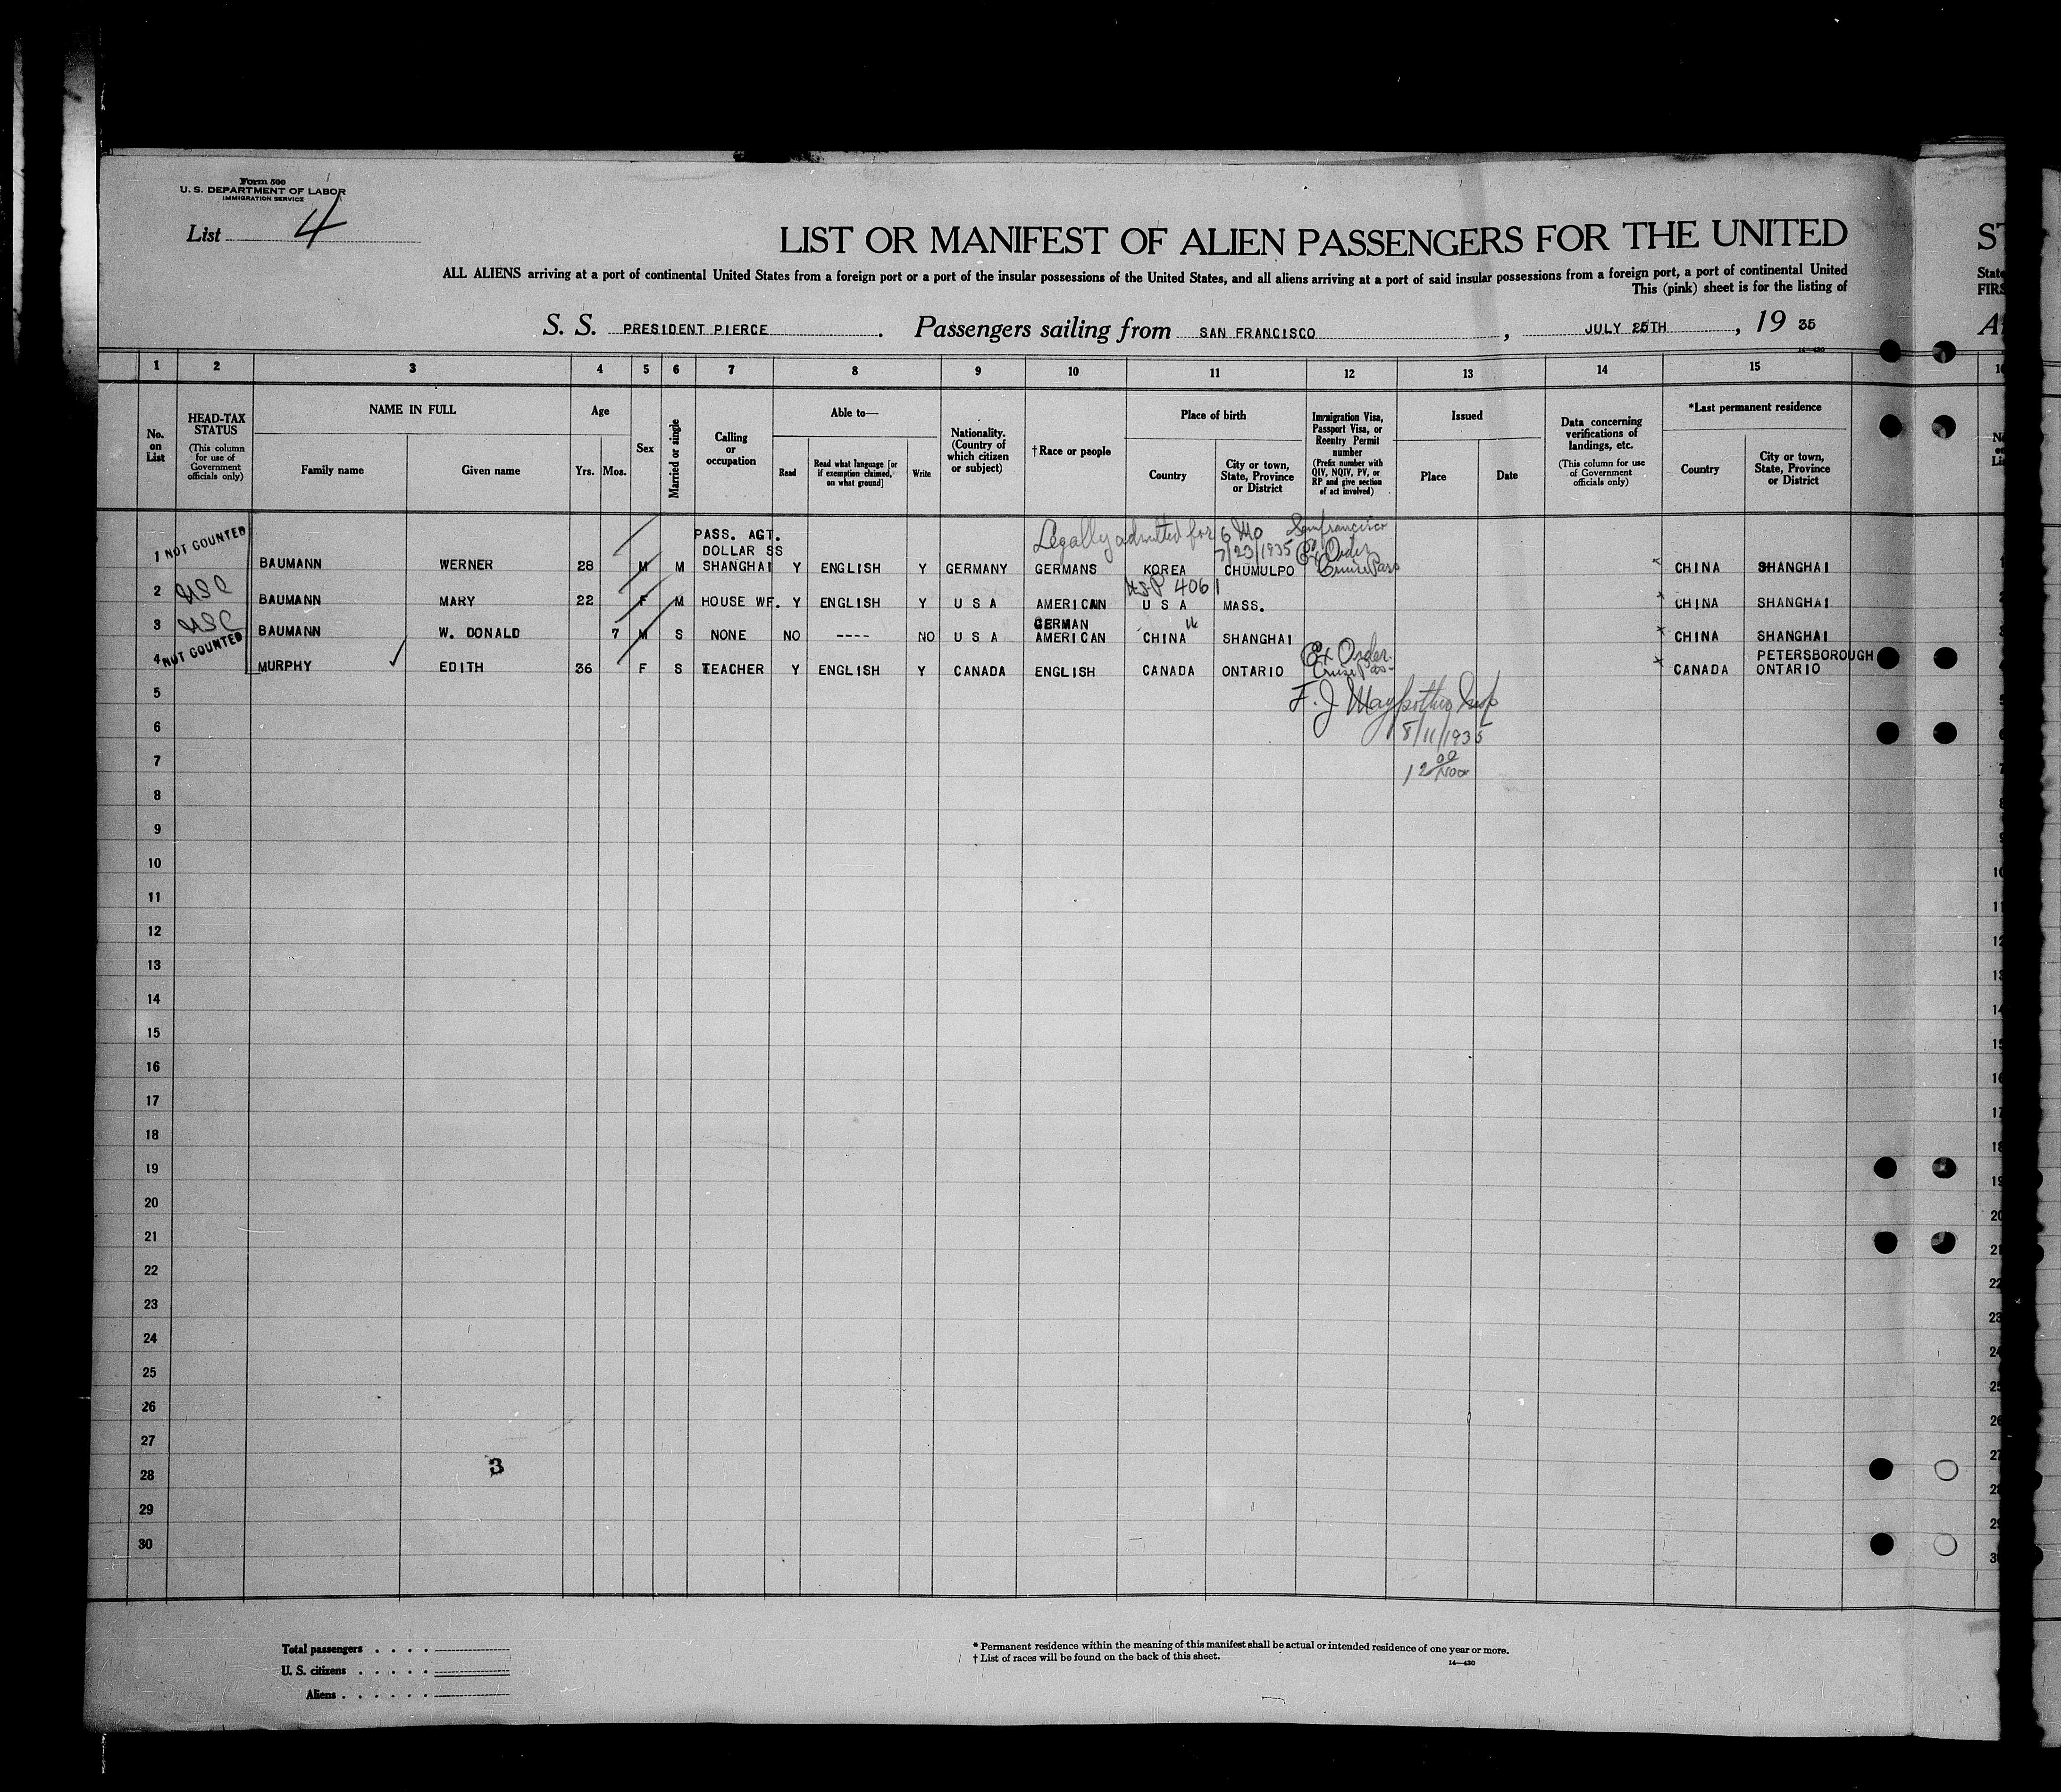 Form 500
U. S. DEPARTMENT OF LABOR
IMMIGRATION SERVICE
List 4
LIST OR MANIFEST OF ALIEN PASSENGERS FOR THE UNITED
ALL ALIENS arriving at a port of continental United States from a foreign port or a port of the insular possessions of the United States, and all aliens arriving at a port of said insular possessions from a foreign port, a port of continental United
This (pink) sheet is for the listing of
S. S. PRESIDENT PIERCE. Passengers sailing from SAN FRANCISCO, JULY 25TH, 19 35
ST
State
FIRS
16—430
1 2 3 4 5 6 7 8 9 10 11 12 13 14 15
No. on List
HEAD-TAX STATUS (This column for use of Government officials only)
NAME IN FULL
Family name
Given name
Age
Yrs. Mos.
Sex
Married or single
Calling or occupation
Able to—
Read
Read what language [or if exemption claimed, on what ground]
Write
Nationality. (Country of which citizen or subject)
†Race or people
Place of birth
Country
City or town, State, Province or District
Immigration Visa, Passport Visa, or Reentry Permit number (Prefix number with QIV, NQIV, PV, or RP and give section of act involved)
Issued
Place
Date
Data concerning verifications of landings, etc. (This column for use of Government officials only)
*Last permanent residence
Country
City or town, State, Province or District
Legally admitted for 6 Mo Sanfrancisco
7/23/1935 Ex Order
Cruise Pass
1 NOT COUNTED BAUMANN WERNER 28 M M PASS. AGT. DOLLAR SS SHANGHAI Y ENGLISH Y GERMANY GERMANS KOREA CHUMULPO CHINA SHANGHAI
USP 4061
2 USC BAUMANN MARY 22 F M HOUSE WF. Y ENGLISH Y U S A AMERICAN U S A MASS. CHINA SHANGHAI
3 USC BAUMANN W. DONALD 7 M S NONE NO ---- NO U S A GERMAN AMERICAN CHINA SHANGHAI CHINA SHANGHAI
4 NOT COUNTED MURPHY EDITH 36 F S TEACHER Y ENGLISH Y CANADA ENGLISH CANADA ONTARIO Ex Order CANADA PETERSBOROUGH ONTARIO
5 F. J.
6 8/11/1935
7 12 00 Noon
8
9
10
11
12
13
14
15
16
17
18
19
20
21
22
23
24
25
26
27
28 3
29
30
Total passengers . . . .
U. S. citizens . . . . .
Aliens . . . . . .
* Permanent residence within the meaning of this manifest shall be actual or intended residence of one year or more.
† List of races will be found on the back of this sheet.
14—430